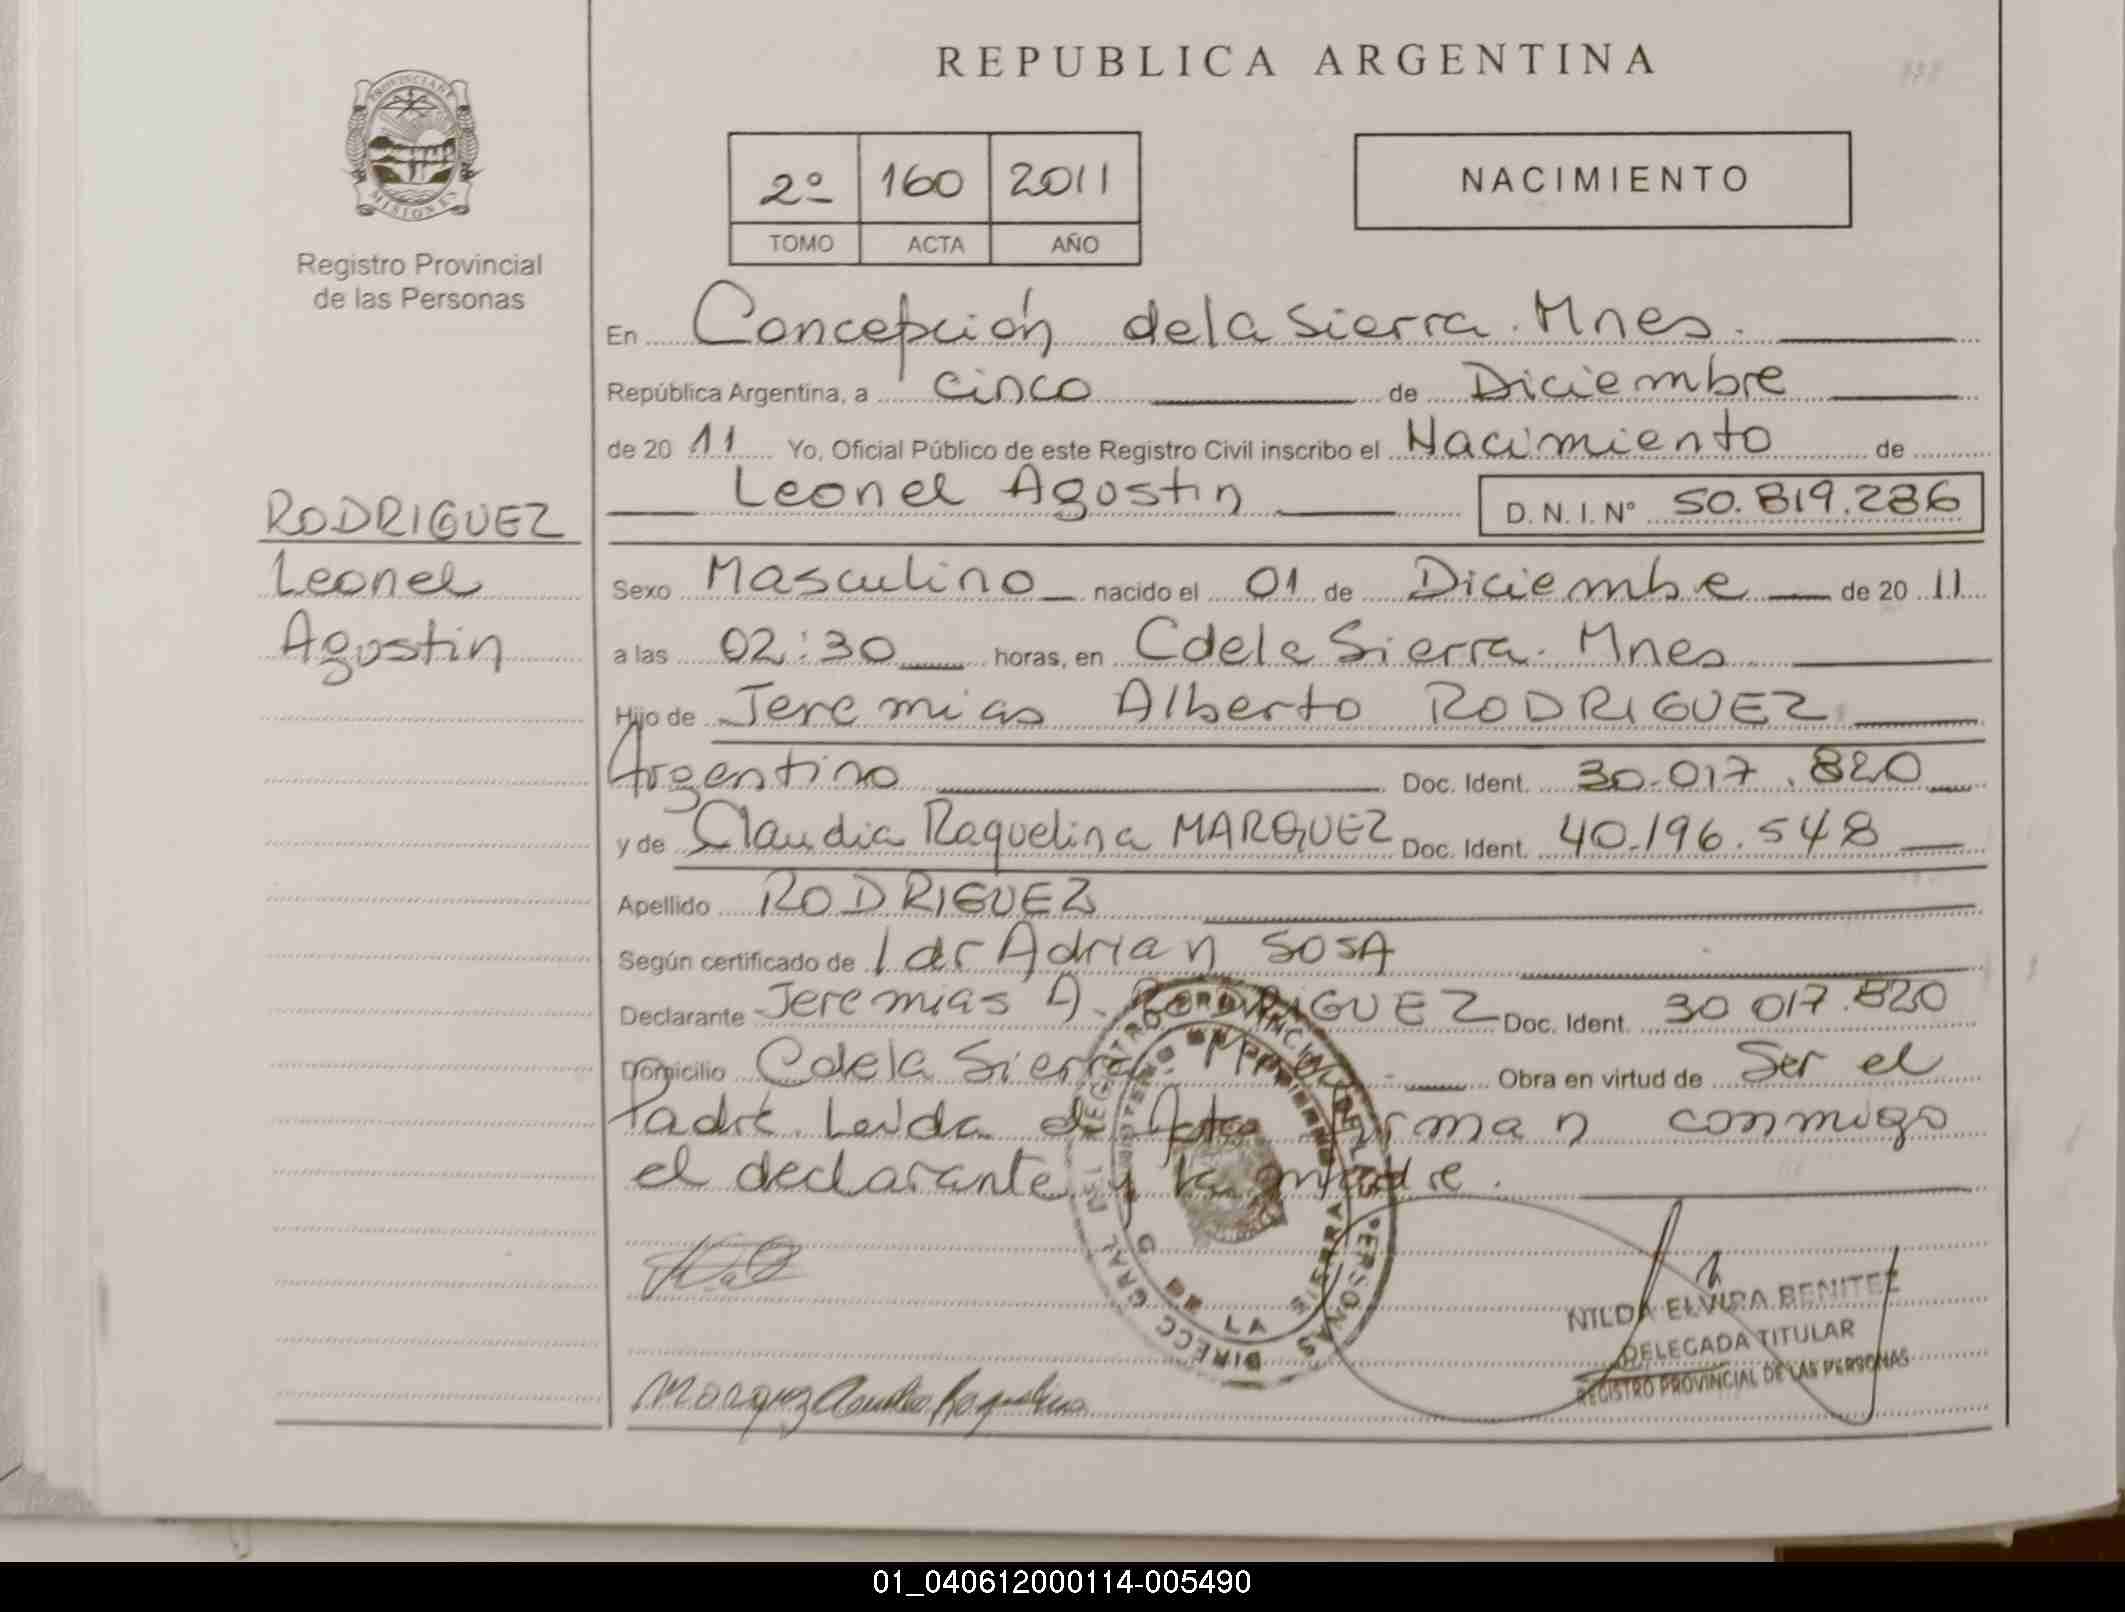 REPUBLICA ARGENTINA
PROVINCIA DE
MISIONES
Registro Provincial
de las Personas
2º 160 2011
TOMO ACTA AÑO
NACIMIENTO
En Concepción de la Sierra. Mnes.
República Argentina, a cinco de Diciembre
de 20 11 Yo, Oficial Público de este Registro Civil inscribo el Nacimiento de
Leonel Agostin D. N. I. Nº 50.819.286
RODRIGUEZ
Leonel
Agostin
Sexo Masculino nacido el 01 de Diciembe de 20 11
a las 02:30 horas, en C de la Sierra. Mnes
Hijo de Jeremias Alberto RODRIGUEZ
Argentino Doc. Ident. 30.017.820
y de Claudia Raquelina MARQUEZ Doc. Ident. 40.196.548
Apellido RODRIGUEZ
Según certificado de Adrian SOSA
Declarante Jeremias A. RODRIGUEZ Doc. Ident. 30 017.820
Domicilio C de la Sierra. Mnes Obra en virtud de Ser el
Padre. Leida el Acta firman conmigo
el declarante y la madre.
DIRECC GRAL DEL REGISTRO PROVINCIAL DE LAS PERSONAS
LA SIERRA
NILDA ELVIRA BENITEZ
DELEGADA TITULAR
REGISTRO PROVINCIAL DE LAS PERSONAS
Marquez Claudia Raquelina
01_040612000114-005490